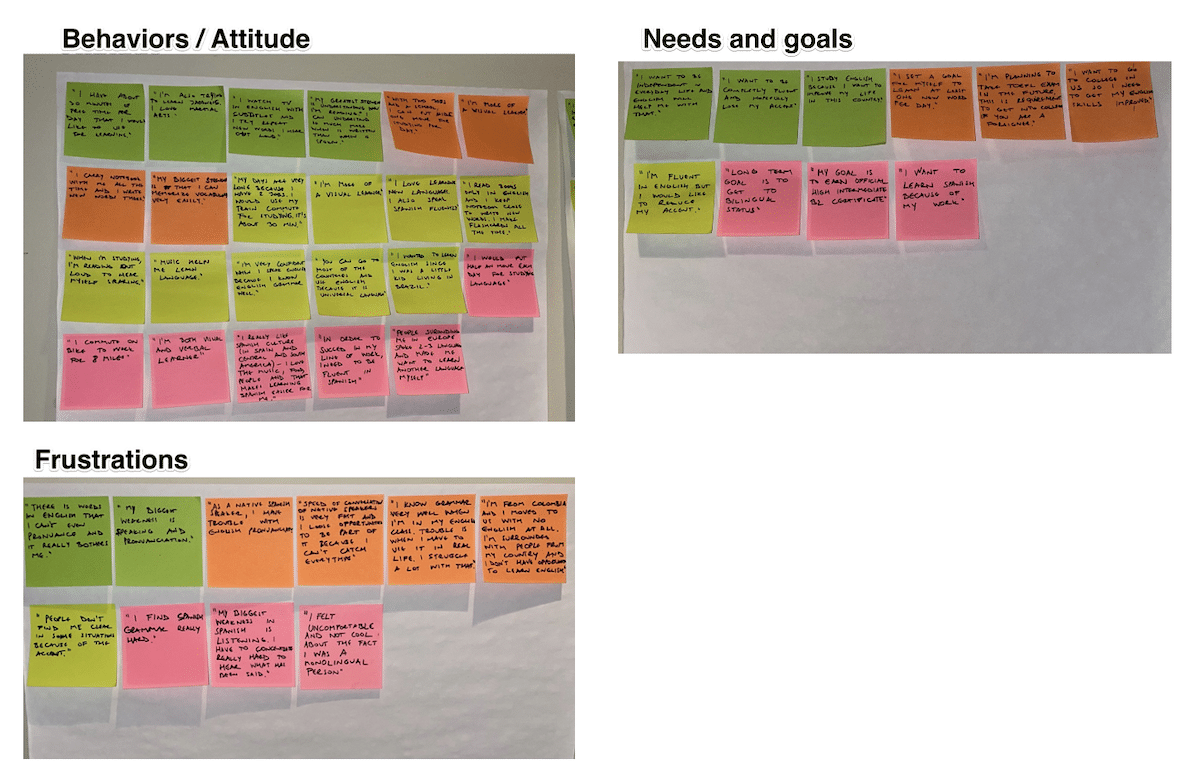 Behaviors / Attitude
"I HAVE ABOUT
30 MINUTES OF
FREE TIME PER
DAY THAT I WOULD
LIKE TO USE
FOR LEARNING."
"I'M ALSO TRYING
TO LEARN JAPANESE,
I LOVE MARTIAL
ARTS."
"I WATCH TV
IN ENGLISH WITH
SUBTITLES AND
I TRY REPEAT
NEW WORDS I HEAR
OUT LOUD."
"MY GREATEST STRENGTH
IS UNDERSTANDING AND
READING. I CAN
UNDERSTAND SO
MUCH MORE
WHEN IS WRITTEN
THAN WHEN
SPOKEN."
"WITH TWO JOBS
AND A SCHOOL,
I CAN PUT
ONE HOUR FOR
STUDYING PER
DAY."
"I'M MORE OF
A VISUAL LEARNER"
"I CARRY NOTEBOOK
WITH ME ALL THE
TIME AND I WRITE
NEW WORDS THERE"
"MY BIGGEST STRENGTH
IS THAT I CAN
MEMORIZE VOCABULARY
VERY EASILY."
"MY DAYS ARE VERY
LONG BECAUSE I
HAVE 2 JOBS. I
WOULD USE MY
TRAIN COMMUTE
FOR STUDING. IT'S
ABOUT 30 MIN."
"I'M MORE OF
A VISUAL LEARNER"
"I LOVE LEARNING
NEW LANGUAGE.
I ALSO SPEAK
SPANISH FLUENTLY"
"I READ BOOKS
ONLY IN ENGLISH
AND I KEEP
NOTEBOOK CLOSE
TO WRITE NEW
WORDS. I MAKE
FLASHCARDS ALL
THE TIME."
"WHEN I'M STUDYING,
I'M READING OUT
LOUD TO HEAR
MYSELF SPEAKING."
"MUSIC HELPS
ME LEARN
LANGUAGE."
"I'M VERY CONFIDENT
WHEN I SPEAK ENGLISH
BECAUSE I KNOW
ENGLISH GRAMMAR
WELL."
"YOU CAN GO TO
MOST OF THE
COUNTRIES AND
USE ENGLISH
BECAUSE IT IS
UNIVERSAL LANGUAGE"
"I WANTED TO LEARN
ENGLISH SINCE
I WAS A LITTLE
KID LIVING IN
BRAZIL."
"I WOULD PUT
HALF AN HOUR EACH
DAY FOR STUDYING
LANGUAGE"
"I COMMUTE ON
BIKE TO WORK
FOR 8 MILES"
"I'M BOTH VISUAL
AND VERBAL
LEARNER"
"I REALLY LIKE
SPANISH CULTURE
(IN SPAIN AND
CENTRAL AND SOUTH
AMERICA) – I LOVE
THE MUSIC, FOOD
PEOPLE AND THAT
MAKES LEARNING
SPANISH EASIER FOR
ME."
"IN ORDER TO
SUCCED IN MY
LINE OF WORK,
I NEED TO BE
FLUENT IN
SPANISH"
"PEOPLE SURROUNDING
ME IN EUROPE
SPOKE 2-3 LANGUAGES
AND MADE ME
WANT TO LEARN
ANOTHER LANGUAGE
MYSELF"
Needs and goals
"I WANT TO BE
INDEPENDENT IN
EVERYDAY LIFE AND
ENGLISH WILL
HELP ME WITH
THAT."
"I WANT TO BE
COMPLETELY FLUENT
AND HOPEFULLY
LOSE MY ACCENT."
"I STUDY ENGLISH
BECAUSE I WANT TO
IMPROVE MY LIFE
IN THIS COUNTRY!"
"I SET A GOAL
FOR MYSELF TO
LEARN AT LEAST
ONE NEW WORD
PER DAY."
"I'M PLANNING TO
TAKE TOEFL EXAM
IN THE FUTURE,
THIS IS REQUIREMENT
TO GET INTO COLLEGE
IF YOU ARE A
FOREIGNER."
"I WANT TO GO
TO COLLEGE IN
US SO I NEED
TO GET MY ENGLISH
SKILLS IMPROVED"
"I'M FLUENT
IN ENGLISH BUT
I WOULD LIKE
TO REDUCE
MY ACCENT."
"LONG TERM
GOAL IS TO
GET TO
BILINGUAL
STATUS"
"MY GOAL IS
TO EARN OFFICIAL
HIGH INTERMEDIATE
B2 CERTIFICATE"
"I WANT TO
LEARN SPANISH
BECAUSE OF
MY WORK"
Frustrations
"THERE IS WORDS
IN ENGLISH THAT
I CAN'T EVEN
PRONUANCE AND
IT REALLY BOTHERS
ME."
"MY BIGGEST
WEAKNESS IS
SPEAKING AND
PRONUNCIATION."
"AS A NATIVE SPANISH
SPEAKER, I HAVE
TROUBLE WITH
ENGLISH PRONUNCIATION"
"SPEED OF CONVERSATION
OF NATIVE SPEAKERS
IS VERY FAST AND
I LOOSE OPPORTUNITIES
TO BE PART OF
IT BECAUSE I
CAN'T CATCH
EVERYTHING"
"I KNOW GRAMMAR
VERY WELL WHEN
I'M IN MY ENGLISH
CLASS. TROUBLE IS
WHEN I HAVE TO
USE IT IN REAL
LIFE. I STRUGGLE
A LOT WITH THAT."
"I'M FROM COLOMBIA
AND I MOVED TO
US WITH NO
ENGLISH AT ALL.
I'M SURROUNDED
WITH PEOPLE FROM
MY COUNTRY AND
I DIDN'T HAVE
TO LEARN ENGLISH"
"PEOPLE DON'T
FIND ME CLEAR
IN SOME SITUATION
BECAUSE OF THE
ACCENT."
"I FIND SPANISH
GRAMMAR REALLY
HARD."
"MY BIGGEST
WEAKNESS IN
SPANISH IS
LISTENING. I
HAVE TO CONCENTRATE
REALLY HARD TO
HEAR WHAT HAS
BEEN SAID."
"I FELT
UNCOMFORTABLE
AND NOT COOL
ABOUT THE FACT
I WAS A
MONOLINGUAL
PERSON"